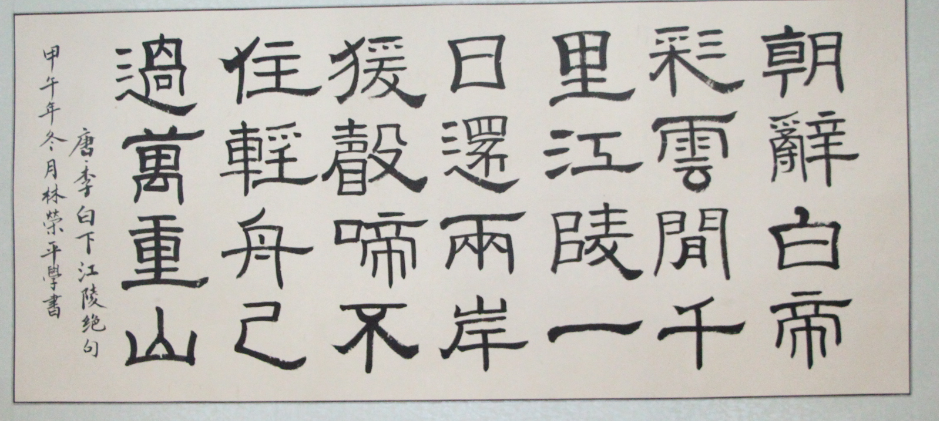 朝辭白帝
彩雲閒千
里江陵一
日還兩岸
猨聲啼不
住輕舟已
過萬重山
唐李白下江陵绝句
甲午年冬月林榮平學書